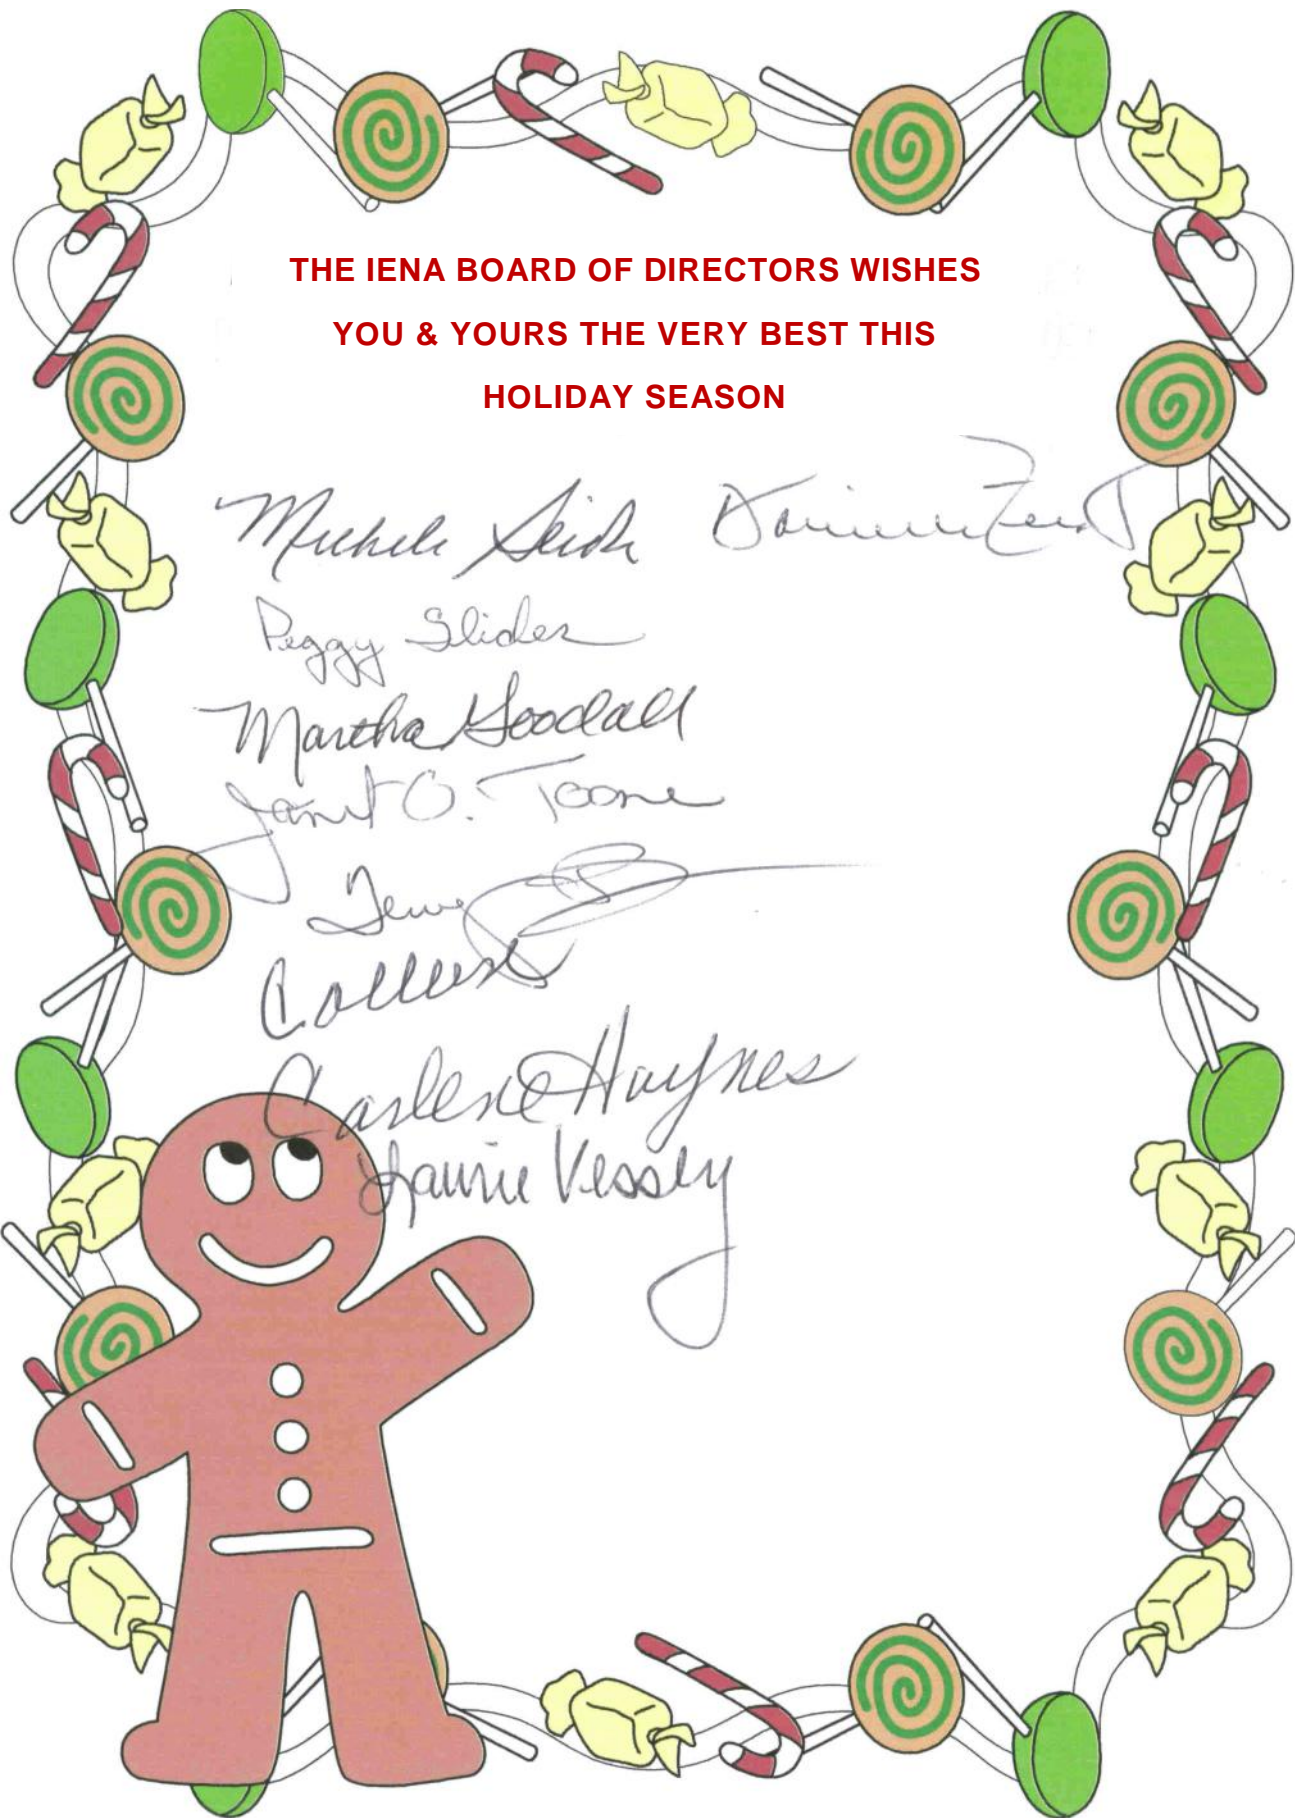 THE IENA BOARD OF DIRECTORS WISHES
YOU & YOURS THE VERY BEST THIS
HOLIDAY SEASON
Michele
Peggy Slider
Martha Goodall
Janet O. Toone
Colleen
Carlene Haynes
Laurie Vessey